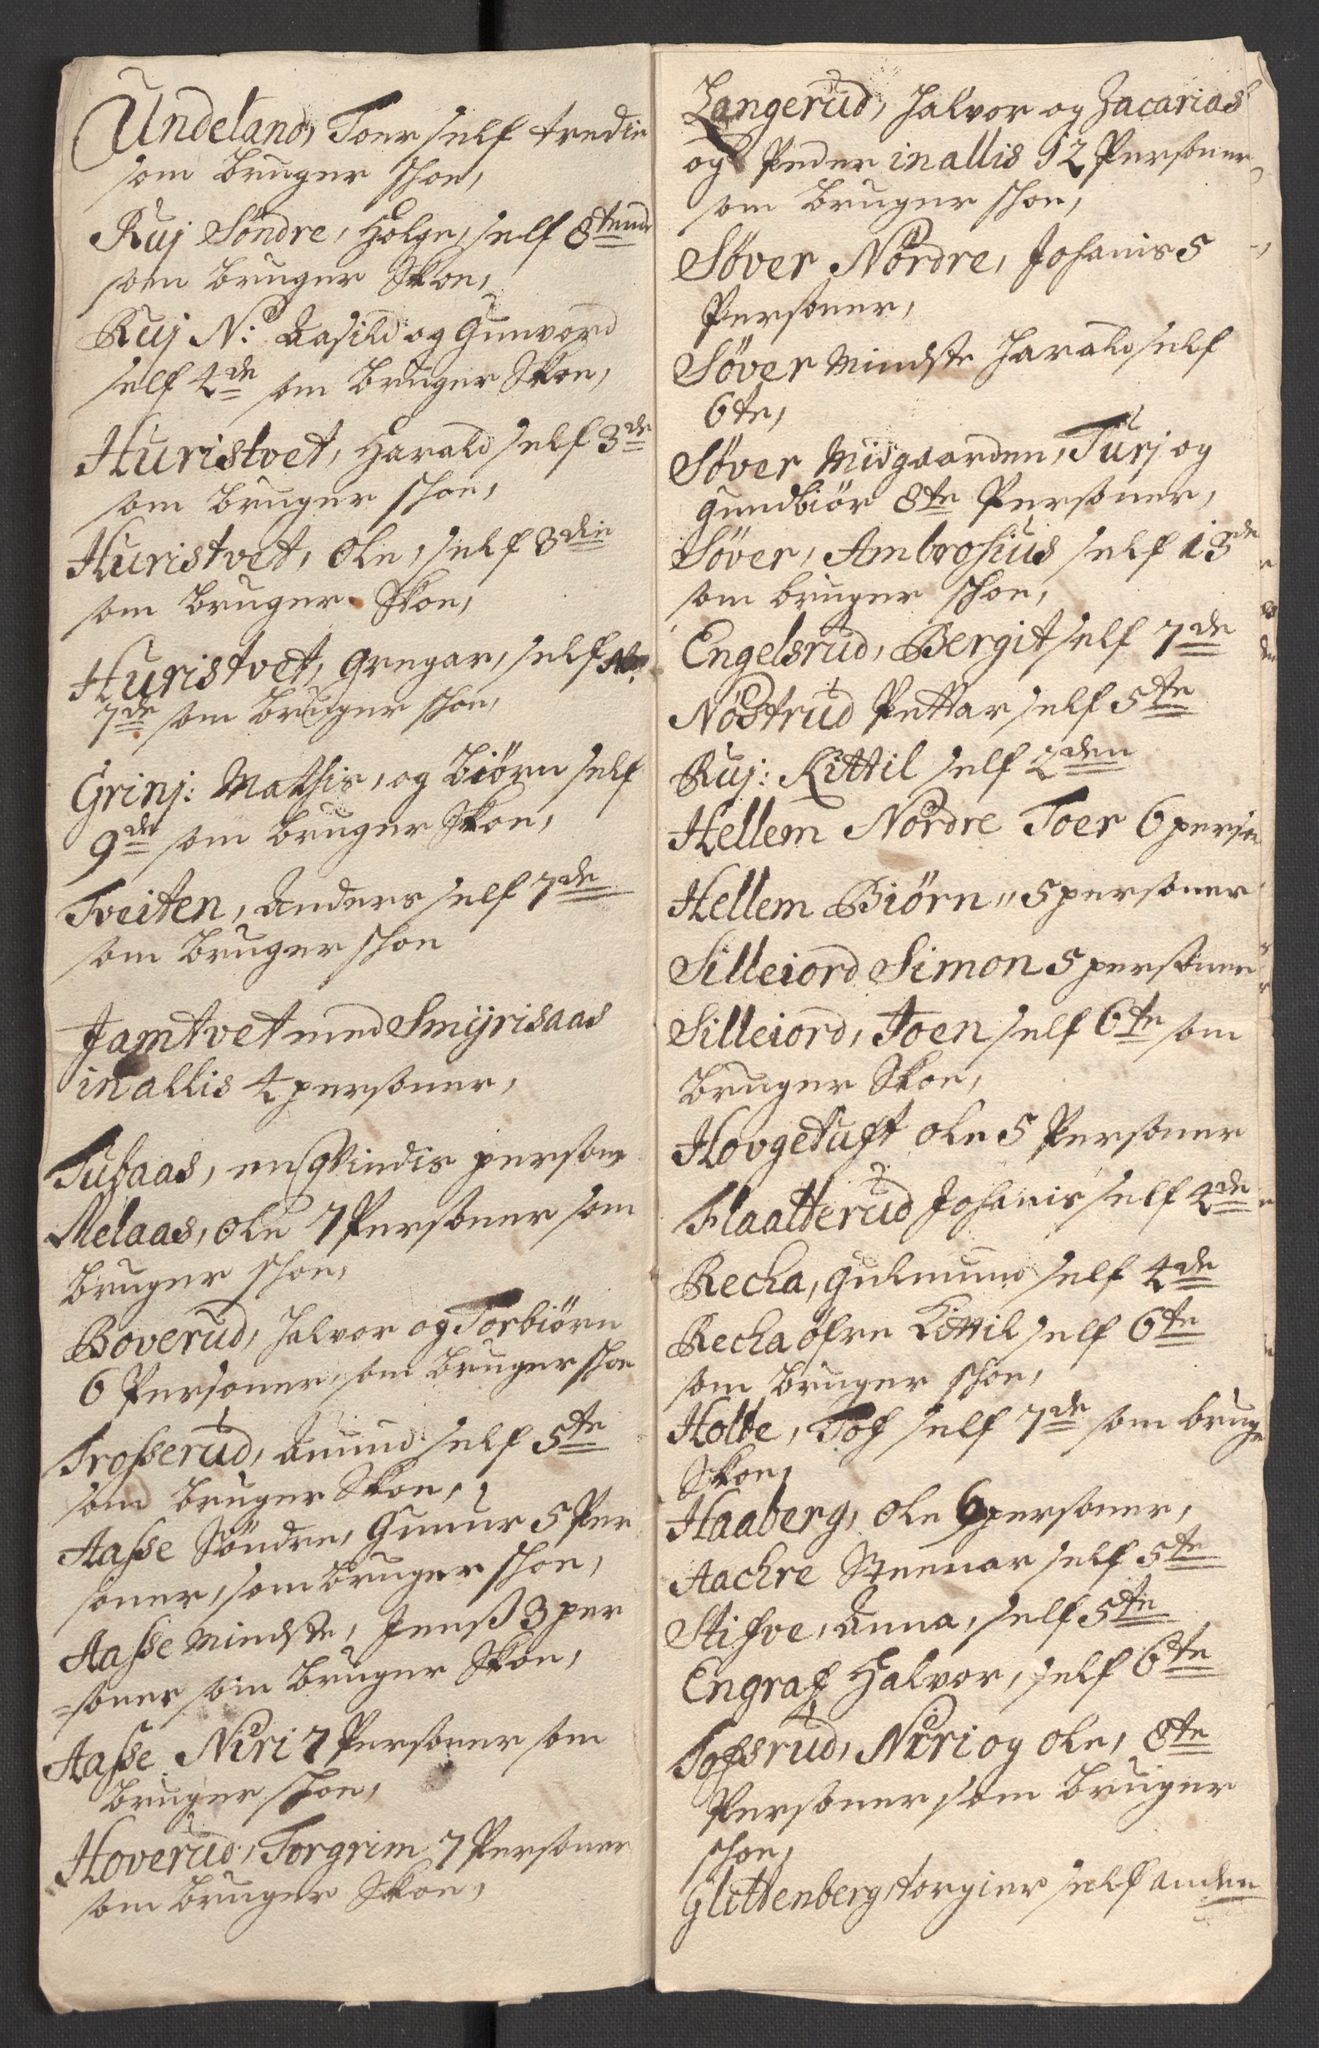 Undeland, Toer self tredie
som bruger schoe,
Ruj Søndre, Holge, self 8tende
som bruger Skoe,
Ruj N: Aasild og Gunvord
self 4de som bruger Skoe,
Huristvet, Harald self 3de
som bruger schoe,
Huristvet, Ole, self 3die
som bruger Skoe,
Huristvet, Gregar, self
7de som bruger schoe,
Grinj: Mathis, og Biørn self
9de som bruger Skoe,
Tveiten, Anders self 7de
som bruger schoe
Jamtvet med Smyrisaas
in allis 4 personer,
Tufaas, en qvindis person
Melaas, Ole 7 Personer som
bruger schoe,
Boverud, Halvor og Torbiørn
6 Personer, som bruger schoe
Trosserud, Amund self 5te
som bruger Skoe,
Aasse Søndre, Gunur 5 Per
soner, som bruger schoe,
Aasse Mindste, Jenss 3 per
=soner som bruger Skoe,
Aasse Niri 7 Personer som
bruger schoe,
Hoverud, Torgrim 7 Personer
som bruger Skoe,
Langerud, Halvor og Zacarias
og Peder in allis 12 Personer
som bruger schoe,
Søver Nordre, Johanis 5
Personer,
Søver Mindste Harald self
6te,
Søver Midgaarden, Turj og
Gundbiør 8te Personer,
Søver, Ambrosius self 13de
som bruger schoe,
Engelsrud, Bergit self 7de
Nostrud Pettar self 5te
Ruj: Kittil self 2den
Hellem Nordre Toer 6 perso
Hellem Biørn, 5 personer
Silleiord Simon 5 personer
Silleiord, Joen self 6te som
bruger Skoe,
Hovgetuft Ole 5 Personer
Flaatterud Johanis self 4de
Recha, Gulmund self 4de
Recha øfre Kittil self 6te
som bruger schoe,
Holte, Tof self 7de som bruge
Skoe,
Haaberg, Ole 6 personer,
Aachre Steenar self 5te
Stifve, Anna, self 5te
Engraf Halvor, self 6te
Tofsrud, Niri og Ole, 8te
Personer, som bruger
schoe,
Glittenberg, torgier self anden